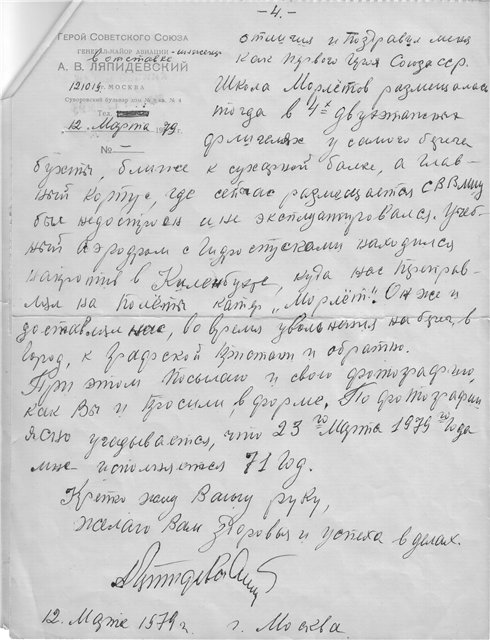 – 4. –
Герой Советского Союза
генерал-майор авиации – инженер
в отставке
А. В. ЛЯПИДЕВСКИЙ
121019. МОСКВА
Суворовский бульвар дом № кв. № 4
Тел.
12. Марта 1979 г.
№ –
отличия и поздравил меня
как первого Героя Союза ССР.
Школа Морлётов размещалась
тогда в 4х двухэтажных
флигелях у самого берега
бухты, ближе к сухарной балке, а глав-
ный корпус, где сейчас размещается СВВМИУ
был недостроен и не эксплуатировался. Учеб-
ный аэродром с гидроспусками находился
напротив в Киленбухте, куда нас переправ-
лял на полёты катер „Морлёт". Он же и
доставлял нас, во время увольнения на берег, в
город, к Графской Пристани и обратно.
При этом посылаю и свою фотографию,
как Вы и просили, в форме. По фотографии
ясно угадывается, что 23го Марта 1979го года
мне исполняется 71 год.
Крепко жму Вашу руку,
желаю Вам здоровья и успеха в делах.
12. Марта 1979 г. г. Москва